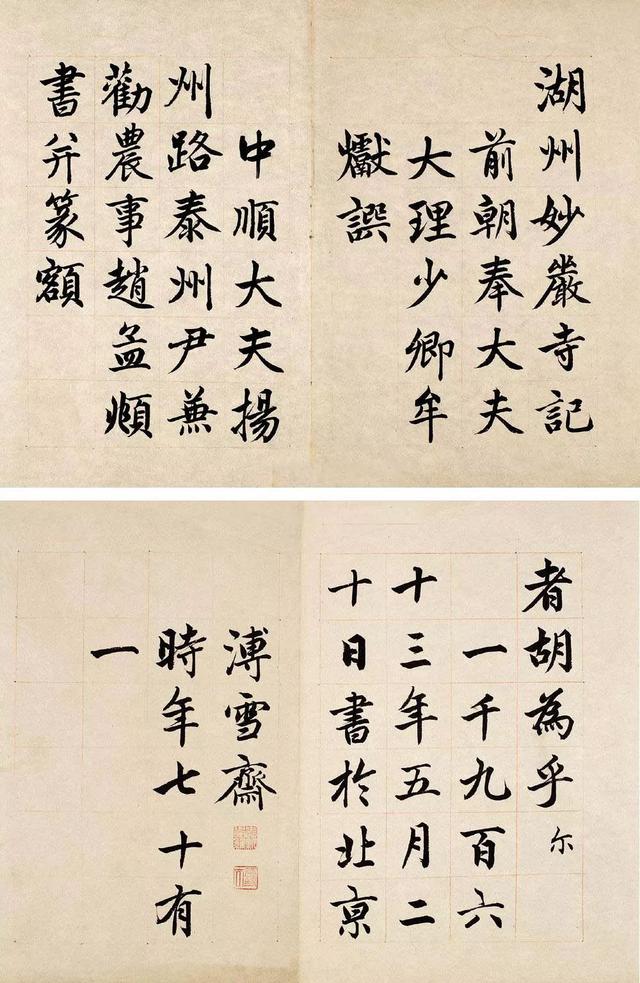 湖州妙嚴寺記
前朝奉大夫
大理少卿牟
巘譔
中順大夫揚
州路泰州尹兼
勸農事趙孟頫
書并篆額
者胡為乎尔
一千九百六
十三年五月二
十日書於北京
溥雪齋
時年七十有
一